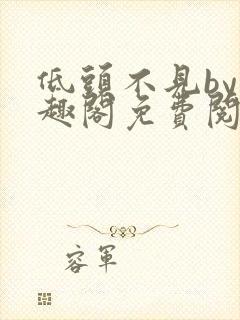 低頭不見by
趣閣免費閱
容軍